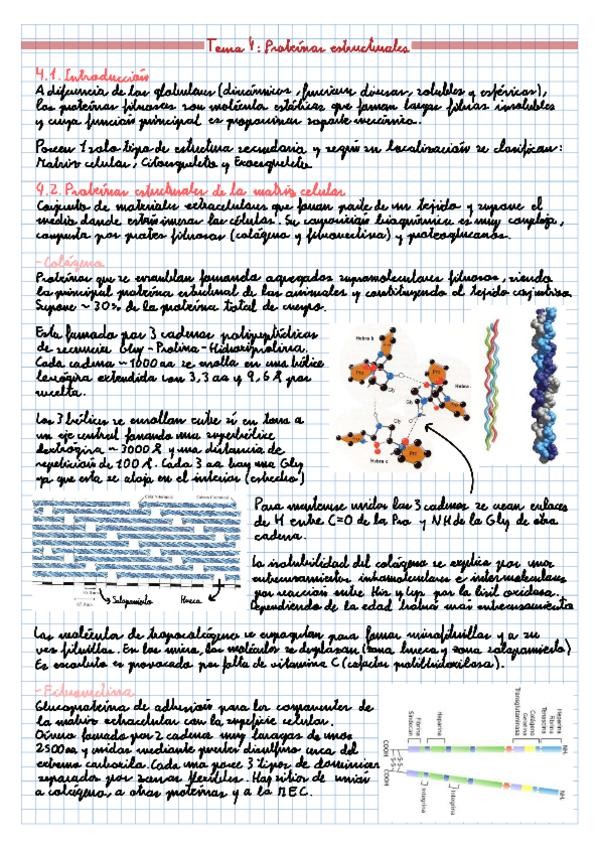 Tema 4: Proteínas estructurales
4.1. Introducción
A diferencia de las globulares (dinámicas, funciones diversas, solubles y esféricas),
las proteínas fibrosas son moléculas estáticas que forman largas fibras insolubles
y cuya función principal es proporcionar soporte mecánico.
Poseen 1 solo tipo de estructura secundaria y según su localización se clasifican:
Matriz celular, Citoesqueleto y Exoesqueleto
4.2. Proteínas estructurales de la matriz celular
Conjunto de materiales extracelulares que forman parte de un tejido y supone el
medio donde están inmersas las células. Su composición bioquímica es muy compleja,
compuesta por fibrosas (colágeno y fibronectina) y proteoglucanos.
-Colágeno
Proteínas que se ensamblan formando agregados supramoleculares fibrosos, siendo
la principal proteína estructural de los animales y constituyendo el tejido conjuntivo.
Supone ~30% de la proteína total de cuerpo.
Esta formado por 3 cadenas polipeptídicas
de secuencia Gly-Prolina-Hidroxiprolina.
Cada cadena ~1000 aa se enrolla en una hélice
levógira extendida con 3,3 aa y 9,6 Å por
vuelta.
Las 3 hélices se enrollan entre sí en torno a
un eje central formando una superhélice
dextrógira ~3000 Å y una distancia de
repetición de 100 Å. Cada 3 aa hay una Gly
ya que esta se aloja en el interior (estrecho)
Hebra b
Hebra a
Hebra c
Pro
Gly
Pro
Gly
Pro
Gly
Solapamiento
Hueca
Para mantenerse unidas las 3 cadenas se crean enlaces
de H entre C=O de la Pro y NH de la Gly de otra
cadena.
La insolubilidad del colágeno se explica por unos
entrecruzamientos intramoleculares e intermoleculares
por reacción entre His y Lys por la lisil oxidasa.
Dependiendo de la edad habrá más entrecruzamientos
Las moléculas de tropocolágeno se empaquetan para formar microfibrillas y a su
vez fibrillas. En las mismas, las moléculas se desplazan (zona hueca y zona solapamiento)
El escorbuto es provocado por falta de vitamina C (cofactor prolilhidroxilasa).
-Fibronectina
Glucoproteína de adhesión para los componentes de
la matriz extracelular con la superficie celular.
Dímero formado por 2 cadenas muy largas de unos
2500 aa y unidas mediante puentes disulfuro cerca del
extremo carboxilo. Cada una posee 3 tipos de dominios
separados por zonas flexibles. Hay sitios de unión
a colágeno, a otras proteínas y a la MEC.
Sindecan
Fibrina
Heparina
Transglutaminasa
Gelatina
Colágeno
Tenascina
Fibrina
Heparina
COOH
COOH
S-S
S-S
NH₂
NH₂
Integrina
Integrina